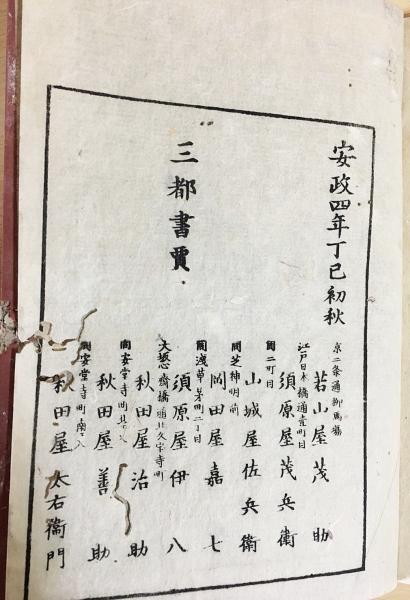 安政四年丁巳初秋
三都書賈
京二条通御馬場
若山屋茂助
江戸日本橋通壹町目
須原屋茂兵衛
同二町目
山城屋佐兵衛
同芝神明前
岡田屋嘉七
同浅草茅町二丁目
須原屋伊八
大坂心齋橋通北久宝寺町
秋田屋治助
同安堂寺町北ヘ入
秋田屋善助
同安堂寺町南ヘ入
秋田屋太右衞門